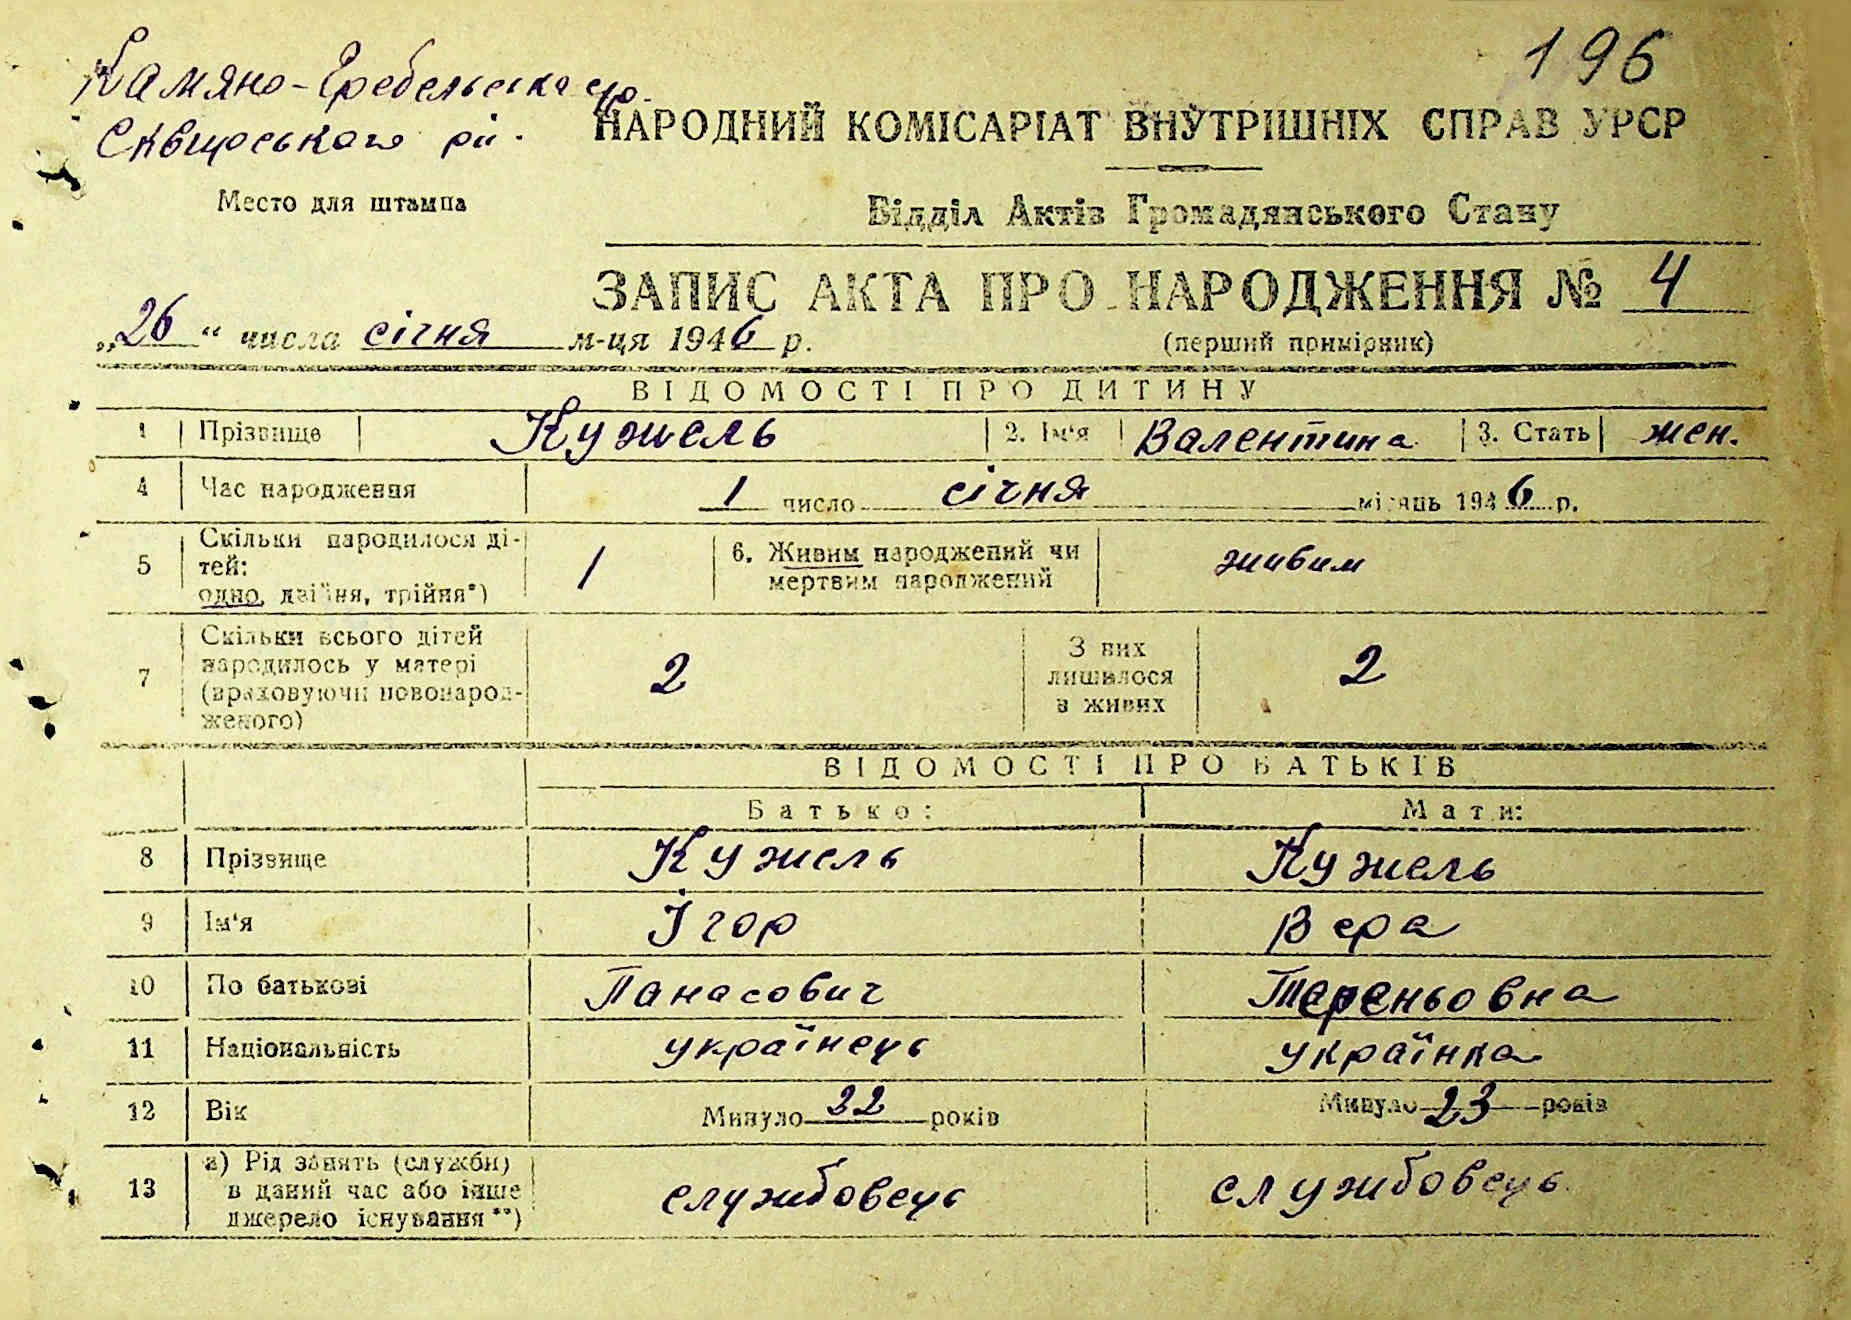 196
Камяно-Гребельська с/р.
Сквирського р-н.
НАРОДНИЙ КОМІСАРІАТ ВНУТРІШНІХ СПРАВ УРСР
Место для штампа
Відділ Актів Громадянського Стану
ЗАПИС АКТА ПРО НАРОДЖЕННЯ № 4
„26“ числа січня м-ця 1946 р.
(перший примірник)
ВІДОМОСТІ ПРО ДИТИНУ
1 Прізвище Кужель 2. Ім'я Валентина 3. Стать жен.
4 Час народження 1 число січня місяць 1946 р.
5 Скільки народилося ді-
тей:
одно, двійня, трійня*) 1
6. Живим народжений чи
мертвим народжений живим
7 Скільки всього дітей
народилось у матері
(враховуючи новонарод-
женого) 2
З них
лишилося
в живих 2
ВІДОМОСТІ ПРО БАТЬКІВ
Батько: Мати:
8 Прізвище Кужель Кужель
9 Ім'я Ігор Вера
10 По батькові Панасович Тереньовна
11 Національність українець українка
12 Вік Минуло 22 років Минуло 23 років
13 а) Рід занять (служби)
в даний час або інше
джерело існування**) службовець службовець